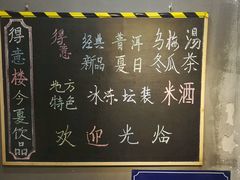 得意楼今夏饮品
得意 经典 普洱 乌梅汤
新品 夏日 冬瓜茶
地方特色 冰冻坛装米酒
欢迎光临